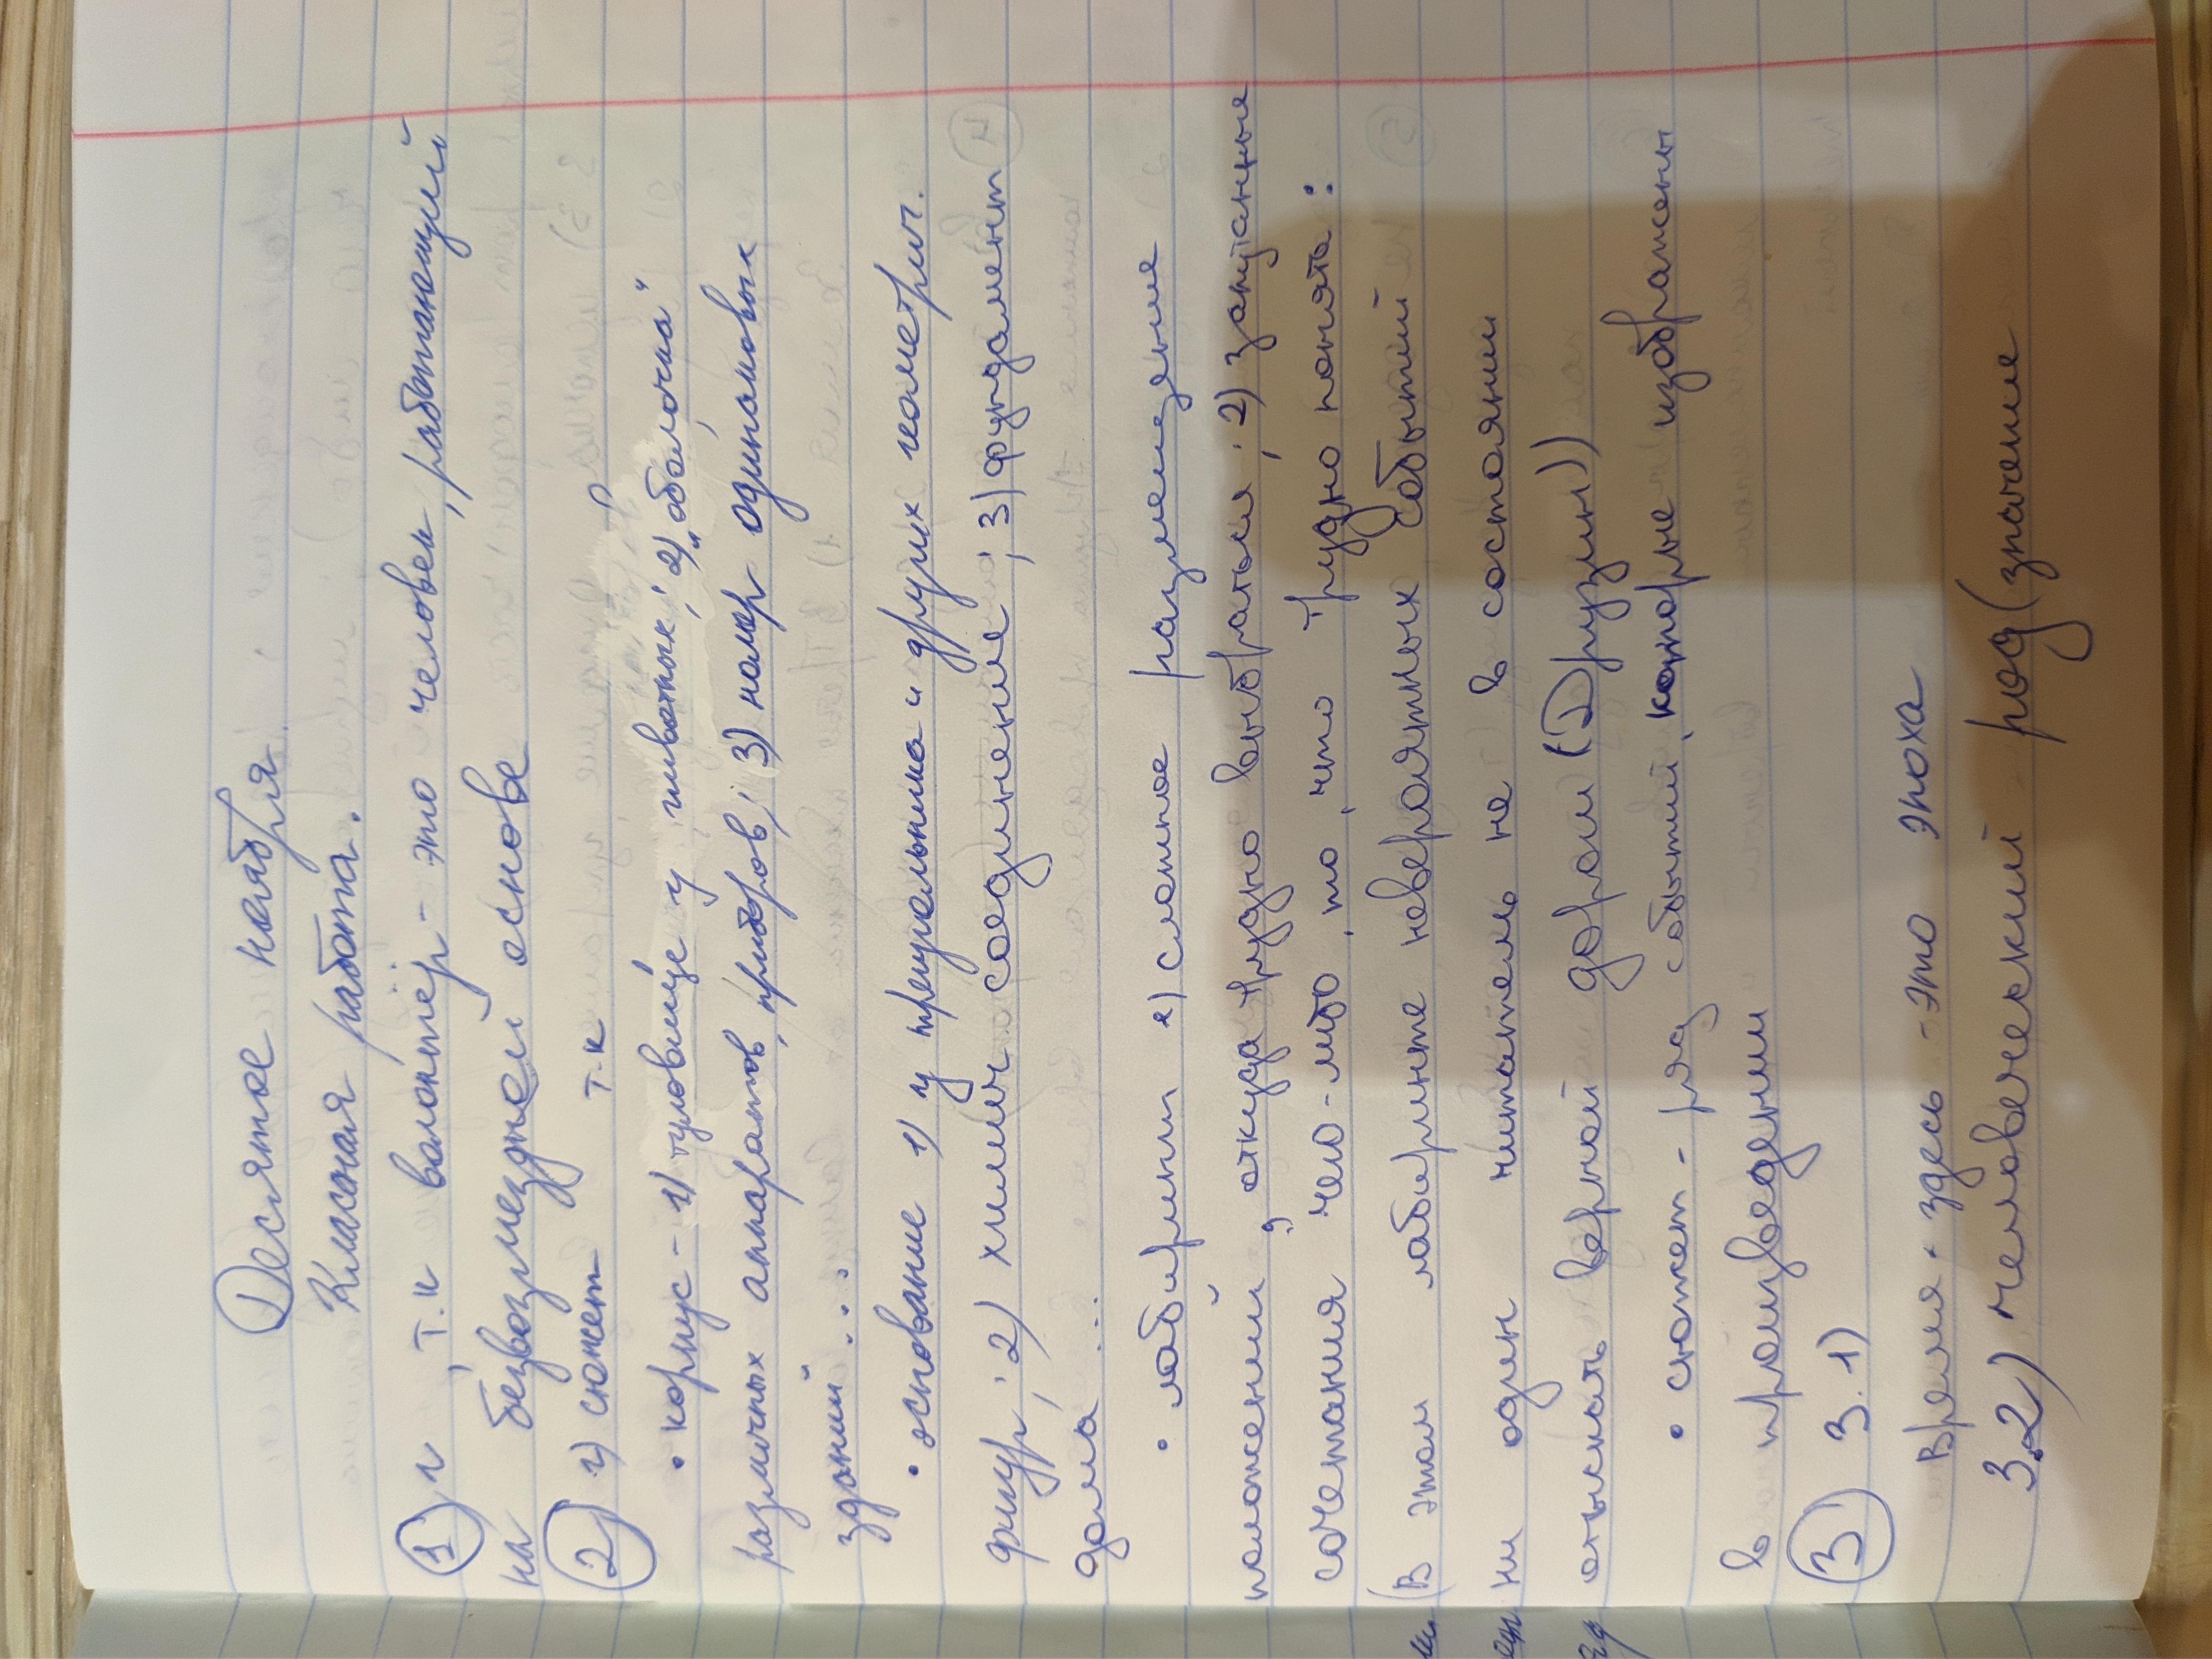 Десятое ноября.
Классная работа.
① г, т.к волонтёр - это человек, работающий
на безвозмездной основе
② г) сюжет т.к
• корпус - 1) туловище у животных; 2) „оболочка"
различных аппаратов, приборов; 3) номер одинаковых
зданий...
• основание 1) у треугольника и других геометрич.
фигур; 2) химич соединение; 3) фундамент
дома...
• лабиринт 1) сложное размещение
положений, откуда трудно выбраться; 2) запутанные
сочетания чего-либо, то, что трудно понять:
(В этом лабиринте невероятных событий
ни один читатель не в состоянии
отыскать верной дороги (Друзин))
• сюжет - ряд событий, которые изображены
в произведении
③ 3.1)
Время - здесь - это эпоха
3.2) человеческий род (значение